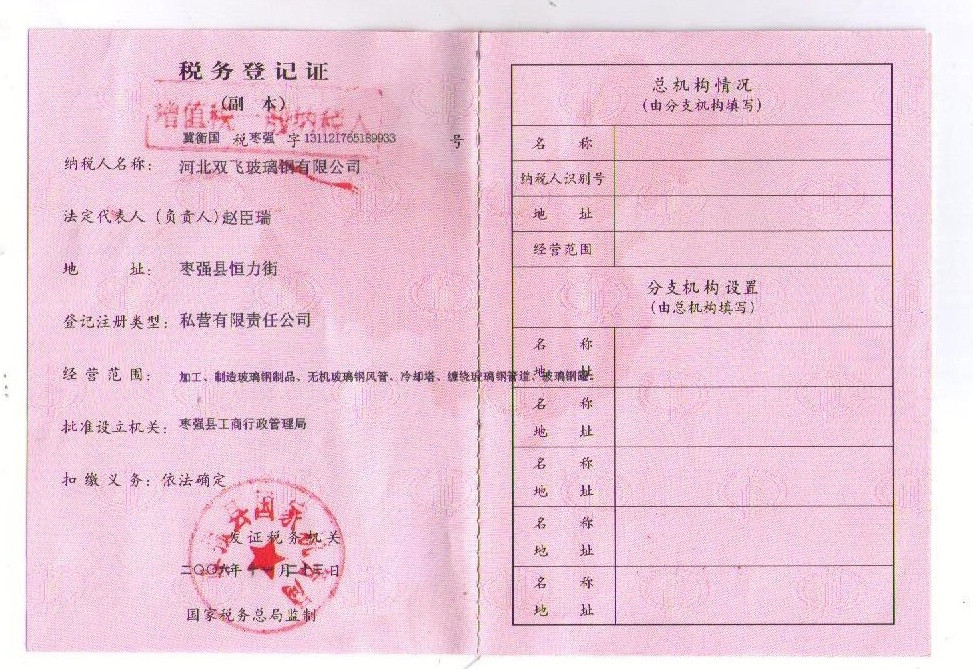 税务登记证
（副 本）
增值税一般纳税人
冀衡国 税 枣强 字 131121765189933 号
纳税人名称： 河北双飞玻璃钢有限公司
法定代表人（负责人）赵臣瑞
地 址： 枣强县恒力街
登记注册类型： 私营有限责任公司
经营范围： 加工、制造玻璃钢制品、无机玻璃钢风管、冷却塔、缠绕玻璃钢管道、玻璃钢罐。
批准设立机关： 枣强县工商行政管理局
扣缴义务： 依法确定
发证税务机关
二〇〇六年十一月二十三日
国家税务总局监制
总机构情况
（由分支机构填写）
名 称
纳税人识别号
地 址
经营范围
分支机构设置
（由总机构填写）
名 称
地 址
名 称
地 址
名 称
地 址
名 称
地 址
名 称
地 址